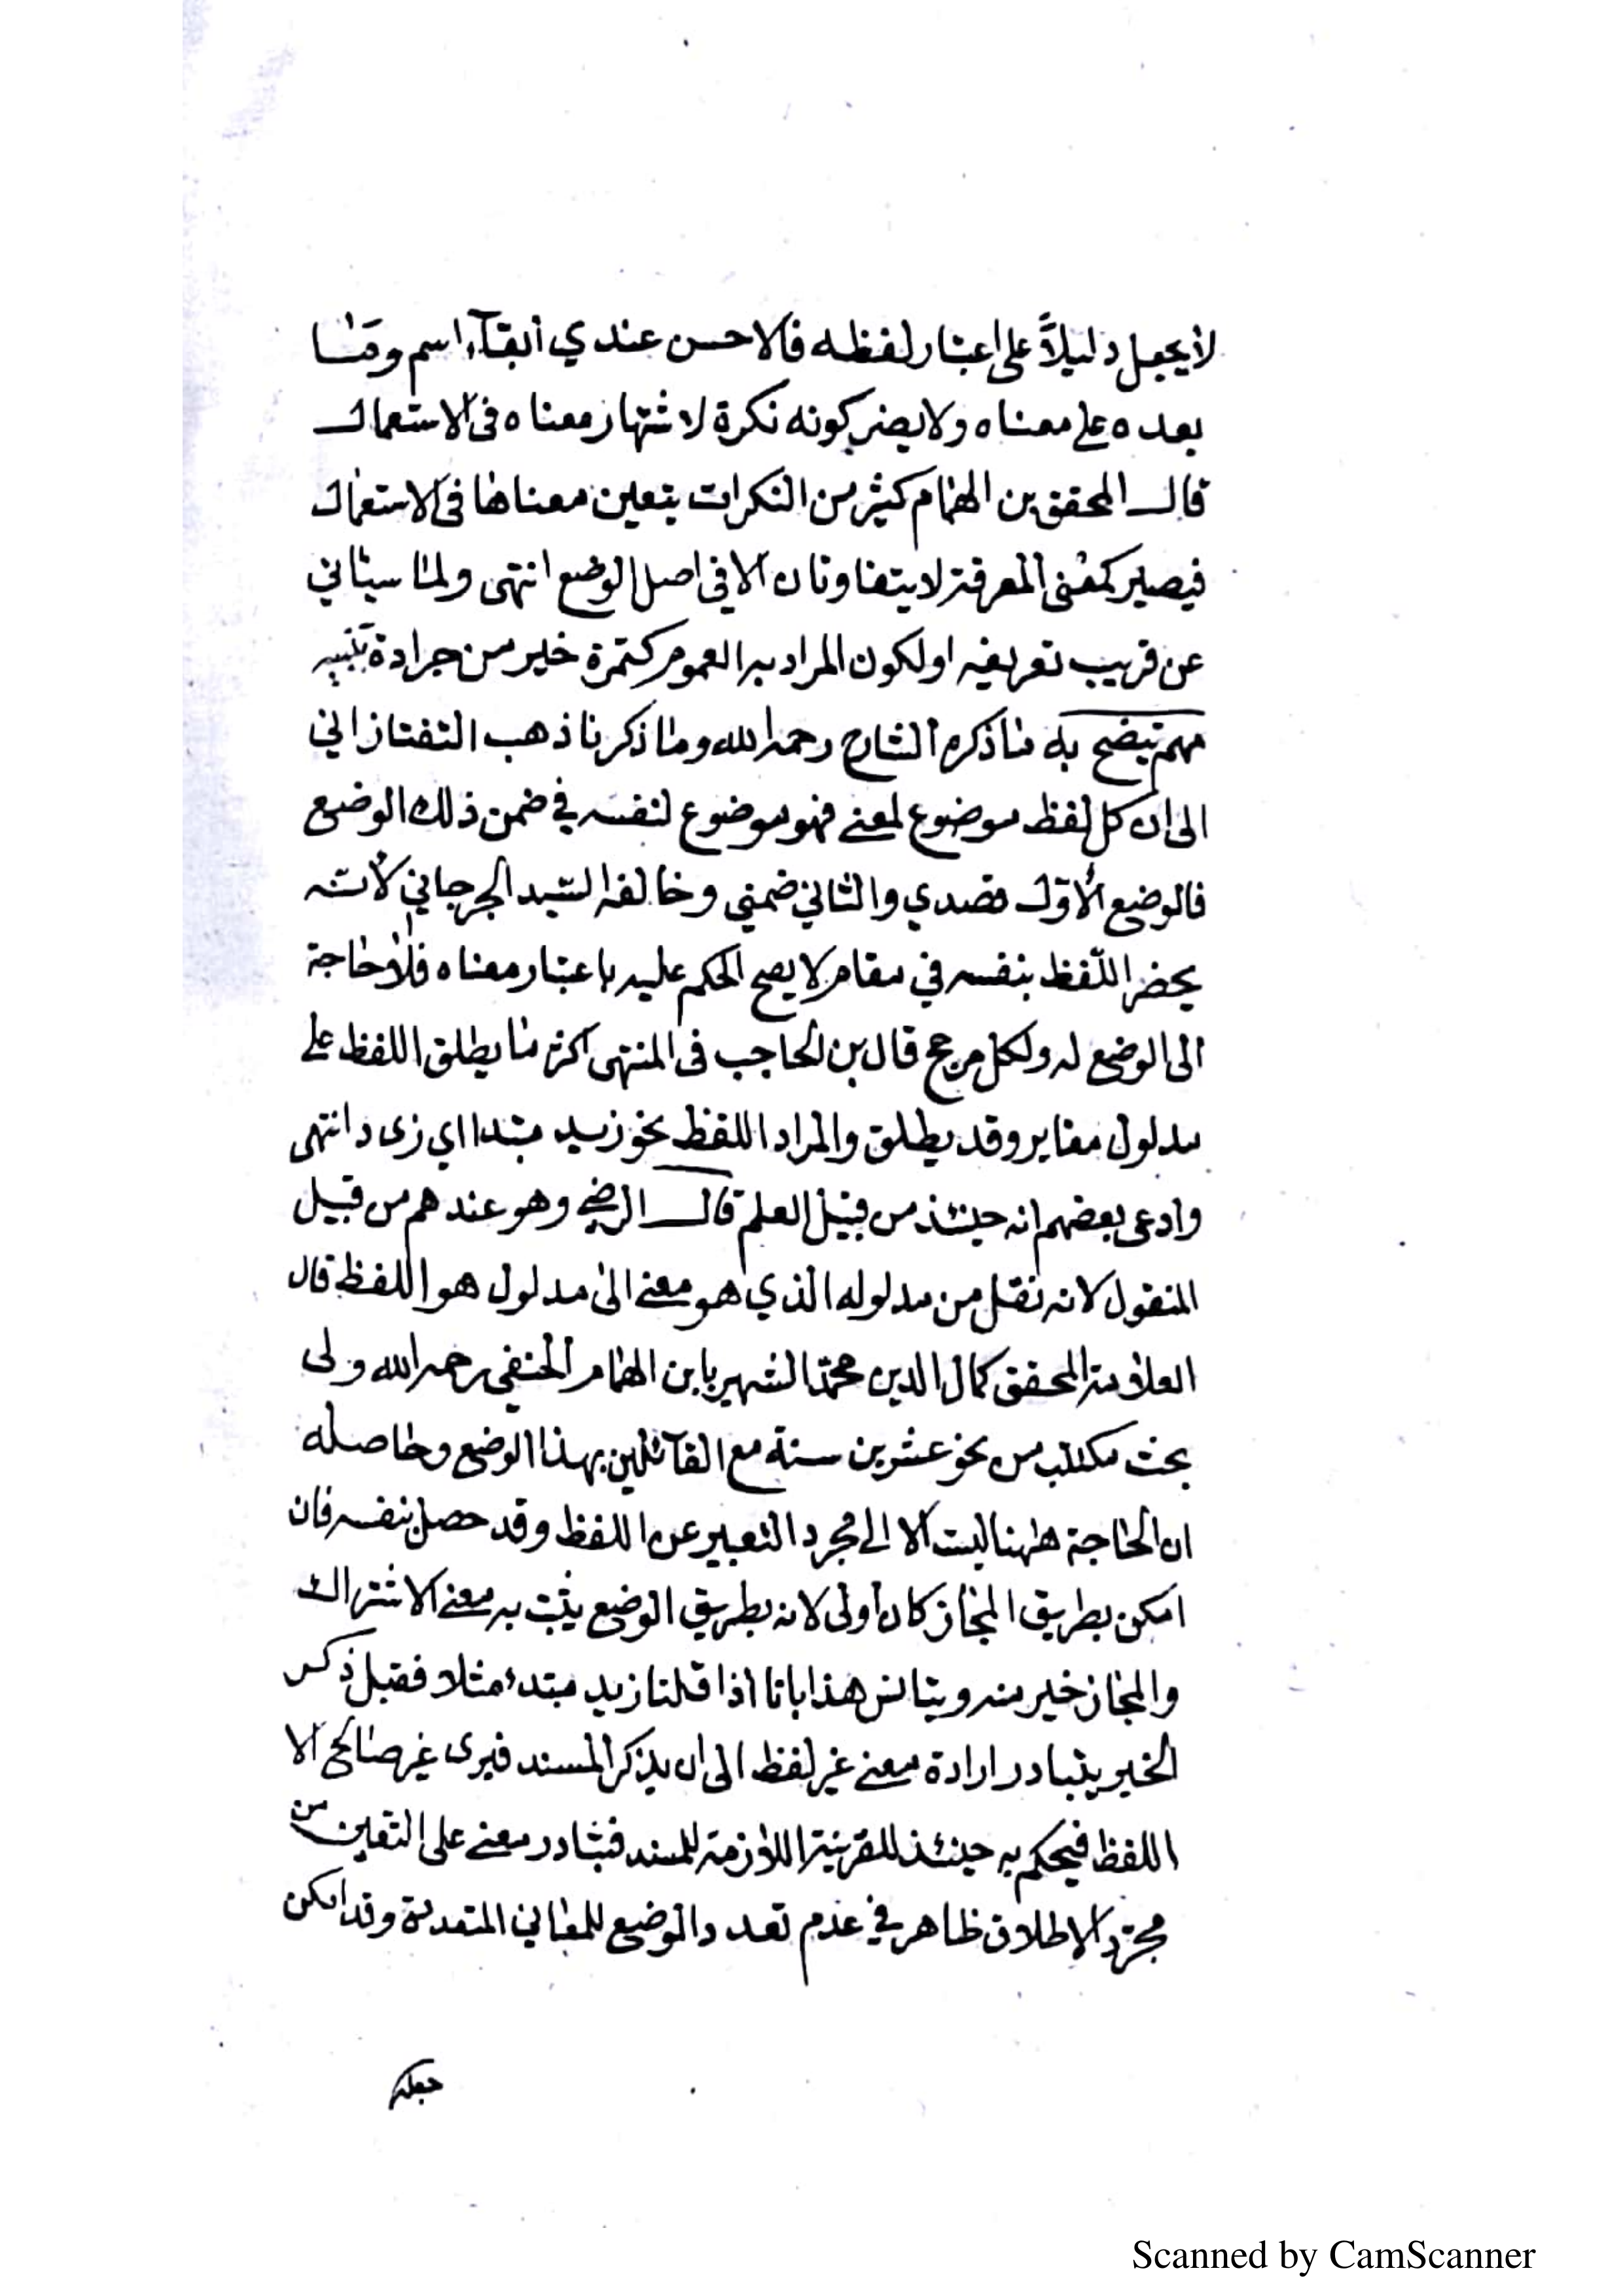 لا يجعل دليلاً على اعتبار لفظه فالاحسن عندي ابقآء اسم وما
بعده على معناه ولا يضر كونه نكرة لاشتهار معناه فى الاستعمال
قال المحقق بن الهمام كثير من النكرات يتعين معناها فى الاستعمال
فيصير كمعنى المعرفة لا يتفاوتان الا في اصل الوضع انتهى ولما سيأتي
عن قريب تعريفه او لكون المراد به العموم كتمرة خير من جرادة تنبيه
مهم يتضح به ما ذكره الشارح رحمه الله وما ذكرنا ذهب التفتازاني
الى ان كل لفظ موضوع لمعنى فهو موضوع لنفسه في ضمن ذلك الوضع
فالوضع الاوّل قصدي والثاني ضمني وخالفه السّيد الجرجاني لأنّه
يحضر اللّفظ بنفسه في مقام لا يصح الحكم عليه باعتبار معناه فلا حاجة
الى الوضع له ولكل مرجح قال بن الحاجب فى المنتهى اكثر ما يطلق اللفظ على
مدلول مغاير وقد يطلق والمراد اللفظ نحو زيد مبتدا اي زى د انتهى
وادعى بعضهم انه حينئذ من قبيل العلم قال الرضي وهو عندهم من قبيل
المنقول لانه نقل من مدلوله الذي هو معنى الى مدلول هو اللفظ قال
العلامة المحقق كمال الدين محمد الشهير بابن الهمام الحنفي رحمه الله ولى
بحث من نحو عشرين سنة مع القآئلين بهذا الوضع وحاصله
ان الحاجة ههنا ليست الا الى مجرد التعبير عن اللفظ وقد حصل بنفسه فان
امكن بطريق المجاز كان أولى لانه بطريق الوضع يثبت به معنى الاشتراك
والمجاز خير منه ويتانس هذا بانا اذا قلنا زيد مبتدء مثلا فقبل ذكر
الخبر يتبادر ارادة معنى غير لفظ الى ان يذكر المسند فيرى غير صالح الا
اللفظ فيحكم به حينئذ للقرينة اللازمة للمسند فتبادر معنى على التعين من
مجرّد الاطلاق ظاهر في عدم تعدد الوضع للمعاني المتعددة وقد امكن
جعله
Scanned by CamScanner